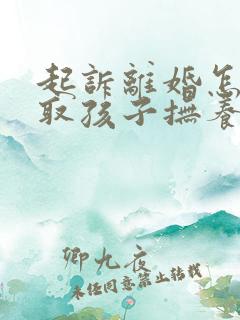 起訴離婚怎
取孩子撫養
卿九夜
未经同意禁止转载